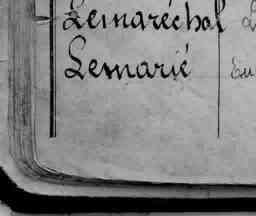 Lemaréchal
Lemarié